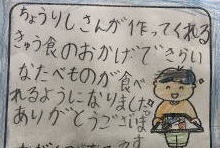 ちょうりしさんが作ってくれる
きゅう食のおかげできらい
なたべものが食べ
れるようになりました。
ありがとうござい